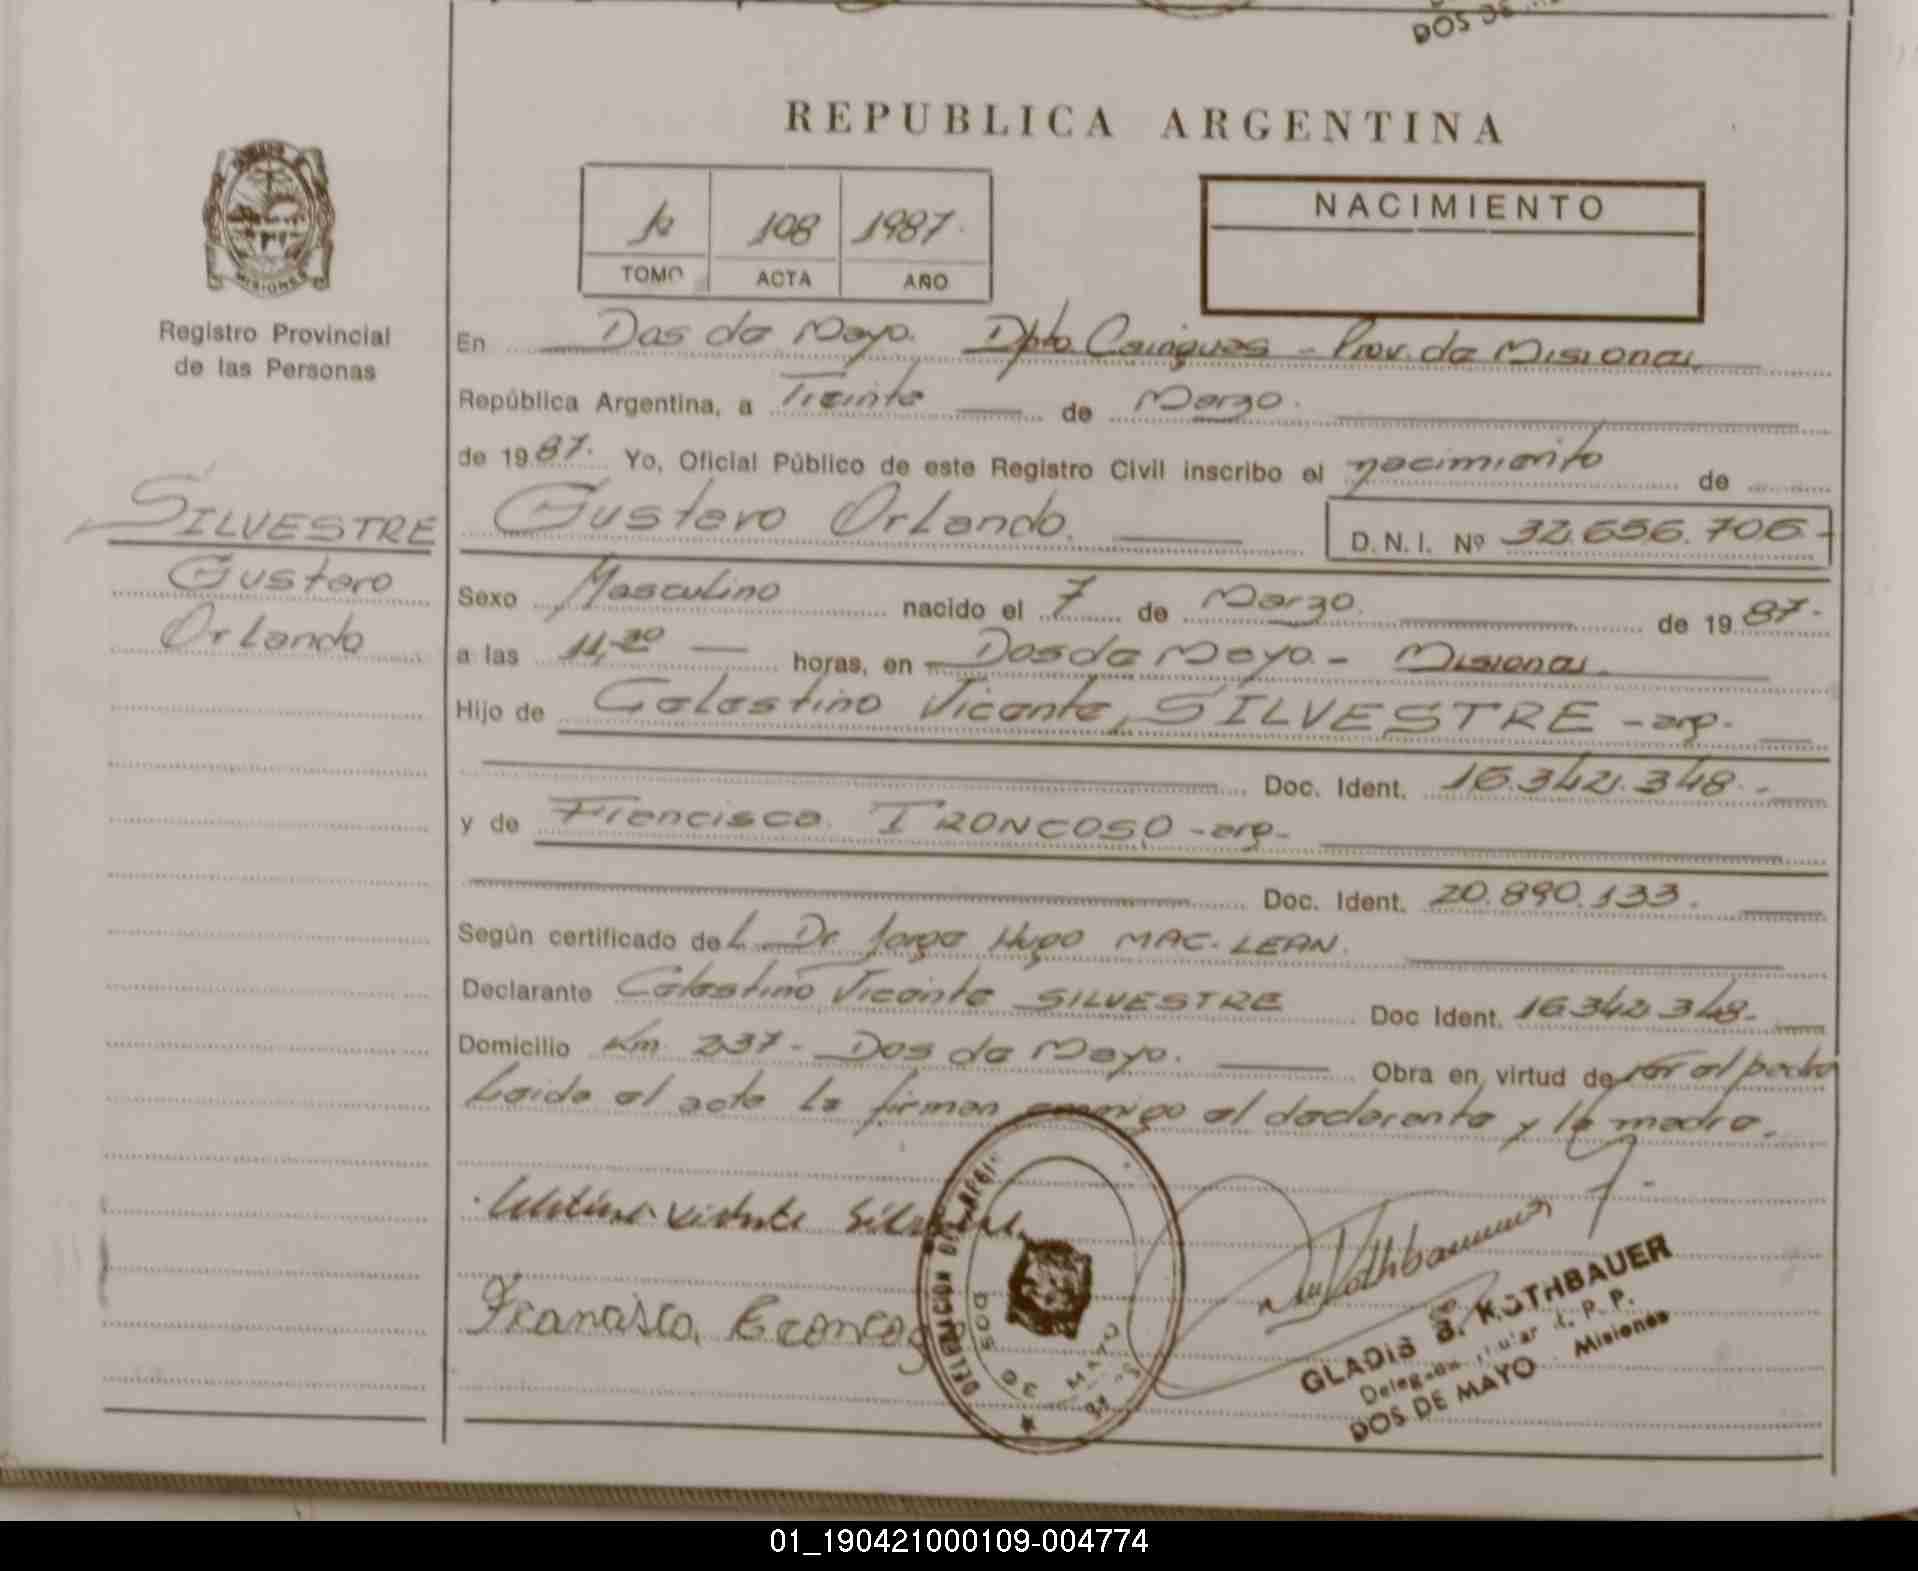 DOS DE
REPUBLICA ARGENTINA
MISIONES
Registro Provincial
de las Personas
108 1987.
TOMO ACTA AÑO
NACIMIENTO
En Dos de Mayo. Dpto. Cainguas - Prov. de Misiones
República Argentina, a Treinta de Marzo.
de 1987. Yo, Oficial Público de este Registro Civil inscribo el nacimiento de
SILVESTRE
Gustavo
Orlando
Gustavo Orlando. D.N.I. Nº 32.656.706-
Sexo Masculino nacido el 7 de Marzo. de 1987.
a las 11,30 horas, en Dos de Mayo. - Misiones.
Hijo de Celestino Vicente, SILVESTRE - arg.
Doc. Ident. 16.342.348.-
y de Francisca TRONCOSO - arg-
Doc. Ident. 20.890.133.
Según certificado del Dr Jorge Hugo MAC-LEAN.
Declarante Celestino Vicente SILVESTRE Doc Ident. 16.342.348-
Domicilio Km 237- Dos de Mayo. Obra en virtud de ser el padre
Leida el acta la firman conmigo el declarante y la madre.
Celestino Vicente Silvestre
Francisca Troncoso
DELEGACION DEL
DOS DE MAYO
Rothbauer
GLADIS B. ROTHBAUER
Delegada Titular R. P. P.
DOS DE MAYO - Misiones
01_190421000109-004774